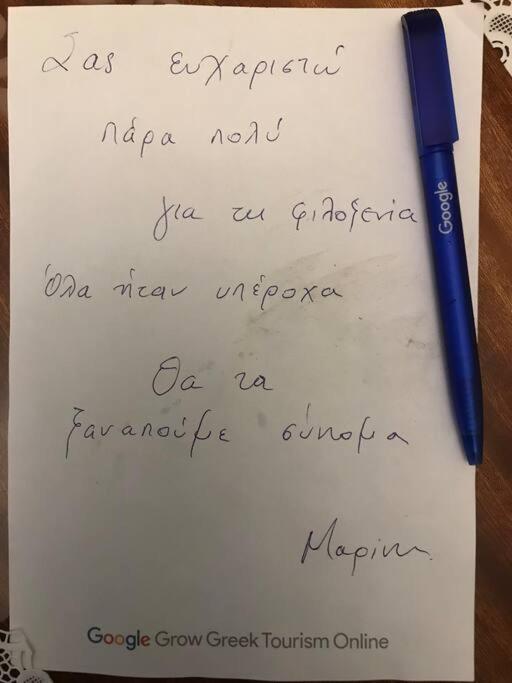 Σας ευχαριστώ
πάρα πολύ
για τη φιλοξενία
Όλα ήταν υπέροχα
Θα τα
ξαναπούμε σύντομα
Μαρίνη
Google Grow Greek Tourism Online
Google